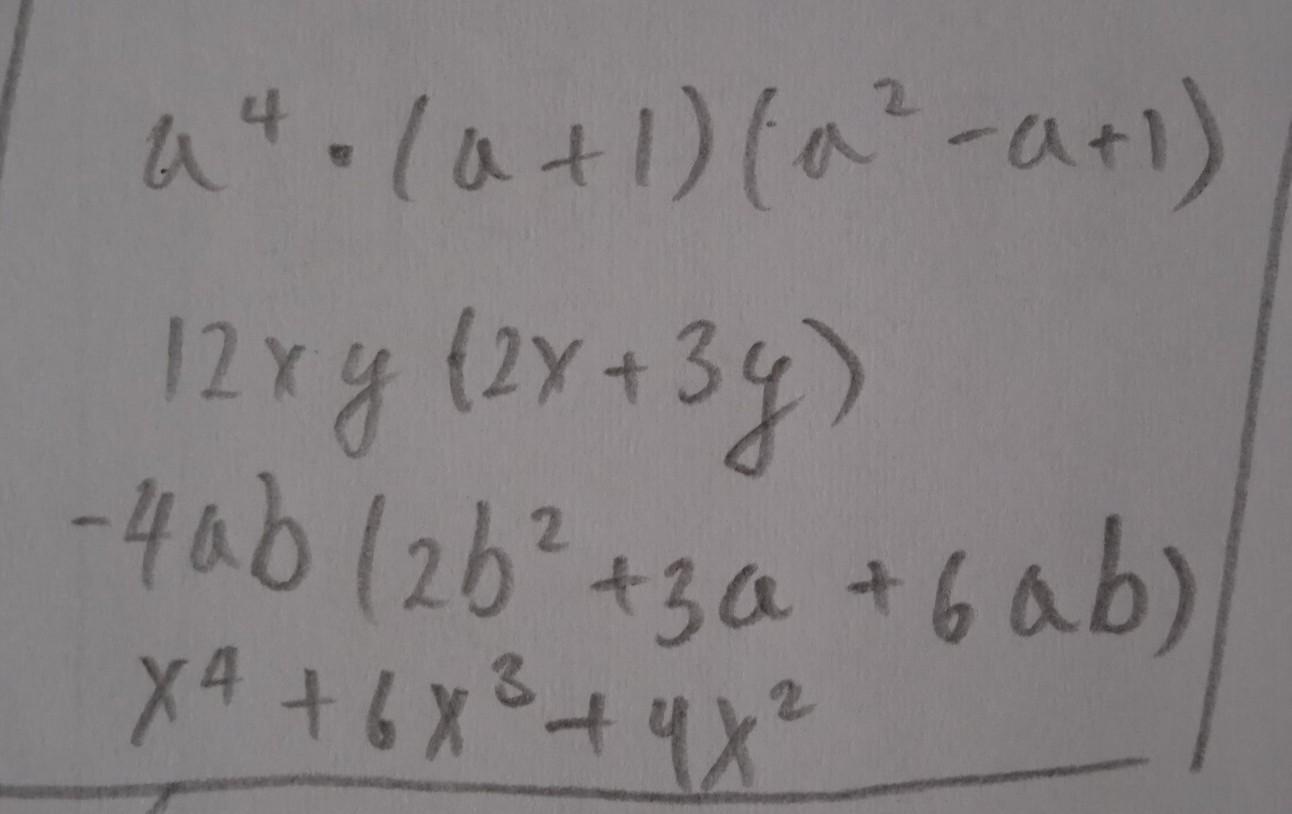 a⁴ · (a+1)(a²-a+1)
12xy (2x+3y)
-4ab (2b²+3a+6ab)
x⁴+6x³+4x²